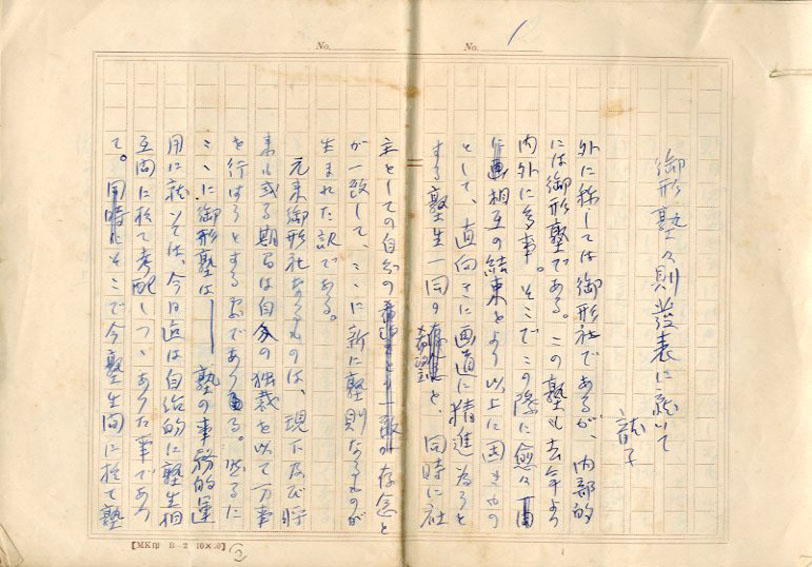 No.
No. 1
御形塾々則發表に就いて
龍子
外に称しては御形社であるが、内部的
には御形塾である。この塾も去年より
内外に多事。そこでこの際に愈々
相互の結束をより以上に固きもの
として、直向きに画道に精進為うと
する塾生一同の希望と、同時に社
主としての自分の存念と
が一致して、こゝに新に塾則なるものが
生まれた訳である。
元来御形社なるものは、現下及び将
来も或る期間は自分の独裁を以て万事
を行はうとするのである。然るに
こゝに御形塾は――塾の事務的運
用に就いては、今日迄は自治的に塾生相
互間に於て考配しつゝありた事であり
て。そこで今塾生間に於て塾
【MK印 B-2 10×.0】